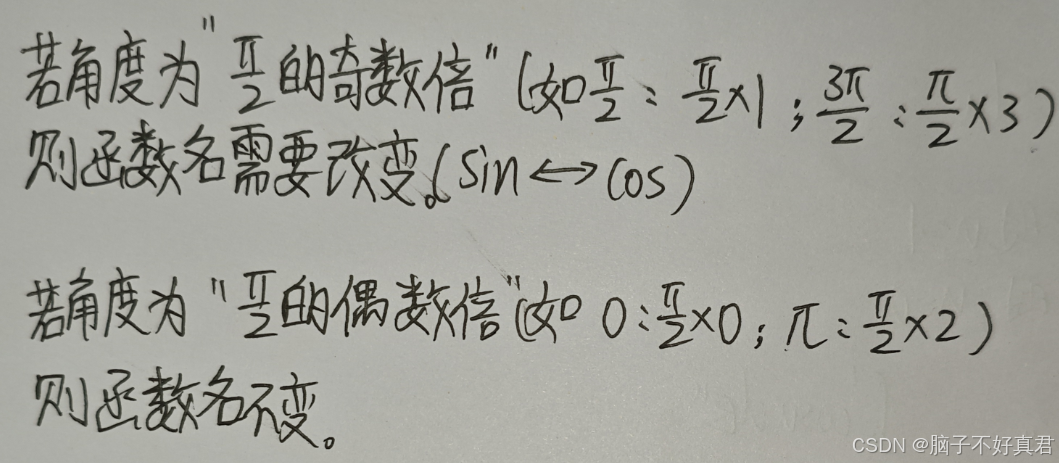 若角度为"π/2的奇数倍"(如π/2：π/2×1；3π/2：π/2×3)
则函数名需要改变。(sin↔cos)
若角度为"π/2的偶数倍"(如 0：π/2×0；π：π/2×2)
则函数名不变。
CSDN @脑子不好真君